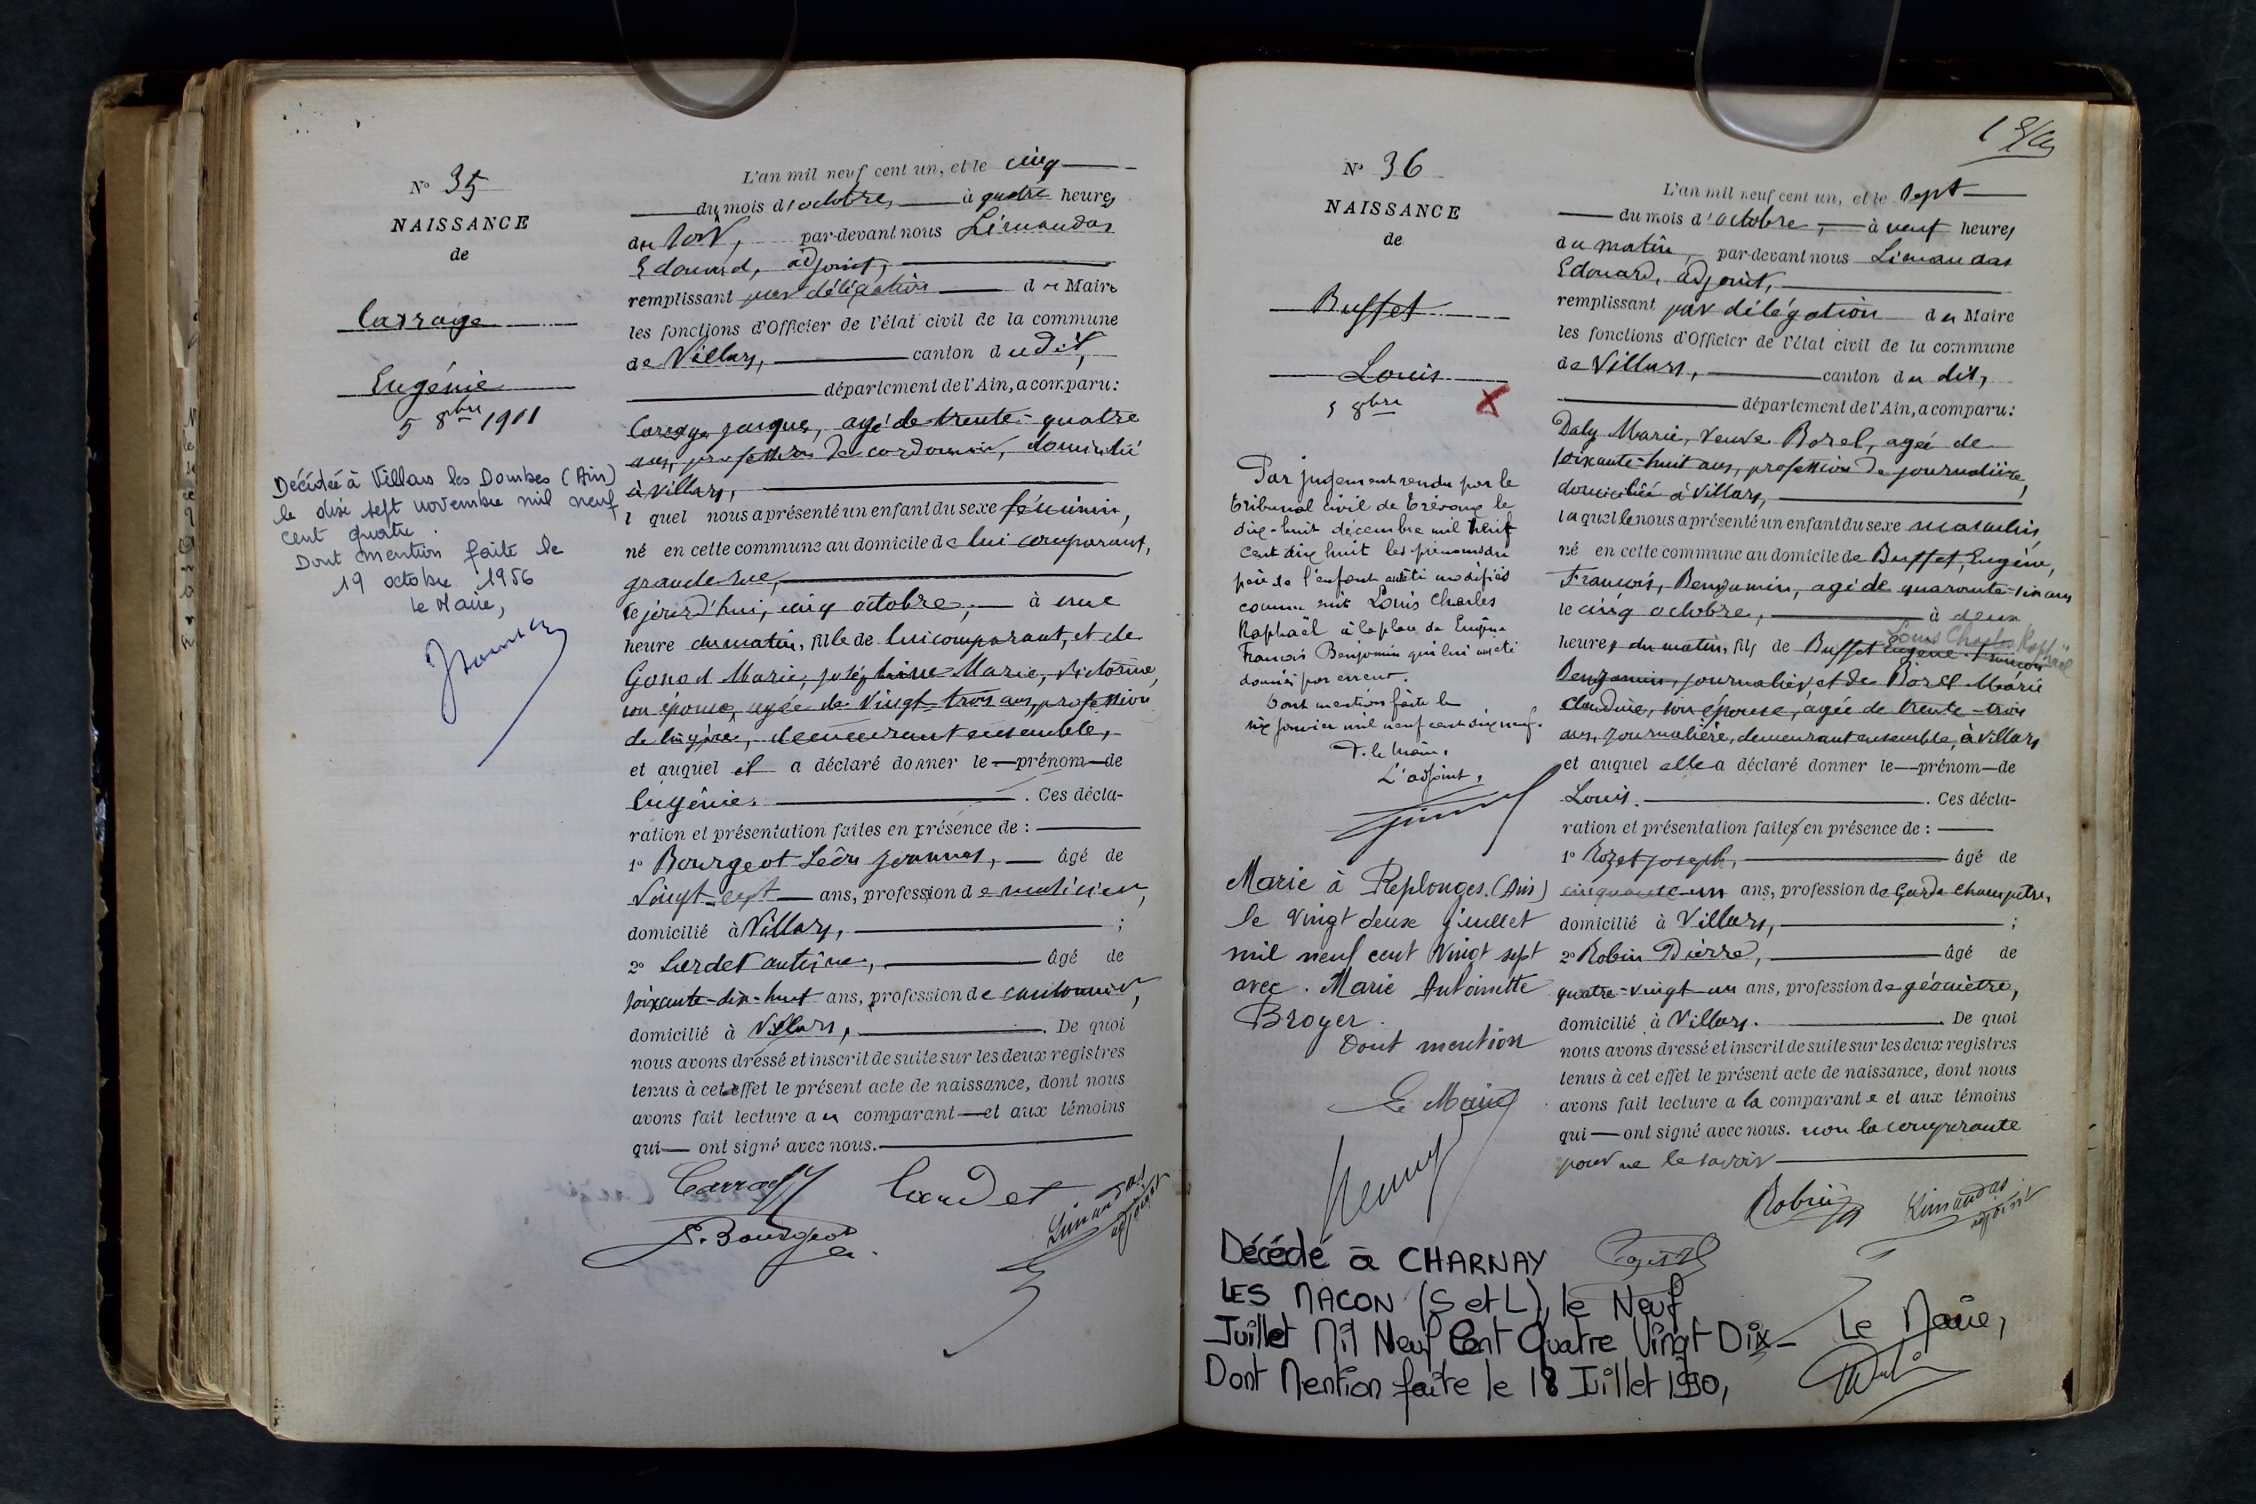 N° 35
NAISSANCE
de
Carrage
Eugénie
5 8bre 1901
Décédée à Villars les Dombes (Ain)
le dix sept novembre mil neuf
cent quatre
Dont mention faite le
19 octobre 1956
le Maire,
L'an mil neuf cent un, et le cinq
du mois d'octobre, à quatre heures
du soir, par-devant nous Limandas
Edouard, adjoint,
remplissant par délégation du Maire
les fonctions d'Officier de l'état civil de la commune
de Villars, canton dudit,
département de l'Ain, a comparu:
Carrage Jacques, agé de trente-quatre
ans, profession de cordonnier, domicilié
à Villars,
lequel nous a présenté un enfant du sexe féminin,
né en cette commune au domicile de lui comparant,
grande rue,
cejourd'hui, cinq octobre, à une
heure du matin, fille de lui comparant, et de
Gonod Marie, Joséphine-Marie, Victorine,
son épouse, agée de vingt-trois ans, profession
de lingère, demeurant ensemble,
et auquel il a déclaré donner le prénom de
Eugénie. Ces décla-
ration et présentation faites en présence de :
1° Bourgeot Léon Joannes, âgé de
vingt-sept ans, profession de
domicilié à Villars, ;
2° antoine, âgé de
soixante-dix-huit ans, profession de cantonnier,
domicilié à Villars, . De quoi
nous avons dressé et inscrit de suite sur les deux registres
tenus à cet effet le présent acte de naissance, dont nous
avons fait lecture au comparant et aux témoins
qui ont signé avec nous.
Carrage
L. Bourgeot
Limandas
adjoint
N° 36
NAISSANCE
de
Buffet
Louis
5 8bre
X
Par jugement rendu par le
tribunal civil de Trévoux le
dix-huit décembre mil neuf
cent dix huit les prénoms du
père de l'enfant ont été modifiés
comme suit Louis Charles
Raphaël à la place de Eugène
François Benjamin qui lui ont été
donnés par erreur.
Dont mention faite le
six janvier mil neuf cent dix neuf.
P. le Maire,
L'adjoint,
Marié à Replonges (Ain)
le vingt deux juillet
mil neuf cent vingt sept
avec Marie Antoinette
Broyer.
Dont mention
Le Maire
L'an mil neuf cent un, et le sept
du mois d'octobre, à neuf heures
du matin, par-devant nous Limandas
Edouard, adjoint,
remplissant par délégation du Maire
les fonctions d'Officier de l'état civil de la commune
de Villars, canton du dit,
département de l'Ain, a comparu:
Daly Marie, veuve Borel, agée de
soixante-huit ans, profession de journalière,
domiciliée à Villars,
laquelle nous a présenté un enfant du sexe masculin
né en cette commune au domicile de Buffet, Eugène,
François, Benjamin, agé de quarante-six ans
le cinq octobre, à deux
Louis Charles Raphaël
heures du matin, fils de Buffet Eugène François
Benjamin, journalier, et de Borel Marie
Claudine, son épouse, agée de trente-trois
ans, journalière, demeurant ensemble, à Villars
et auquel elle a déclaré donner le prénom de
Louis. Ces décla-
ration et présentation faites en présence de :
1° Rozet Joseph, âgé de
cinquante-un ans, profession de Garde champêtre,
domicilié à Villars, ;
2° Robin Pierre, âgé de
quatre-vingt-un ans, profession de géomètre,
domicilié à Villars. De quoi
nous avons dressé et inscrit de suite sur les deux registres
tenus à cet effet le présent acte de naissance, dont nous
avons fait lecture a la comparante et aux témoins
qui ont signé avec nous. non la comparante
pour ne le savoir
Robin
Limandas
adjoint
Décédé à CHARNAY
LES MACON (S et L), le Neuf
Juillet Mil Neuf Cent Quatre Vingt Dix -
Dont Mention faite le 18 Juillet 1990,
Le Maire,